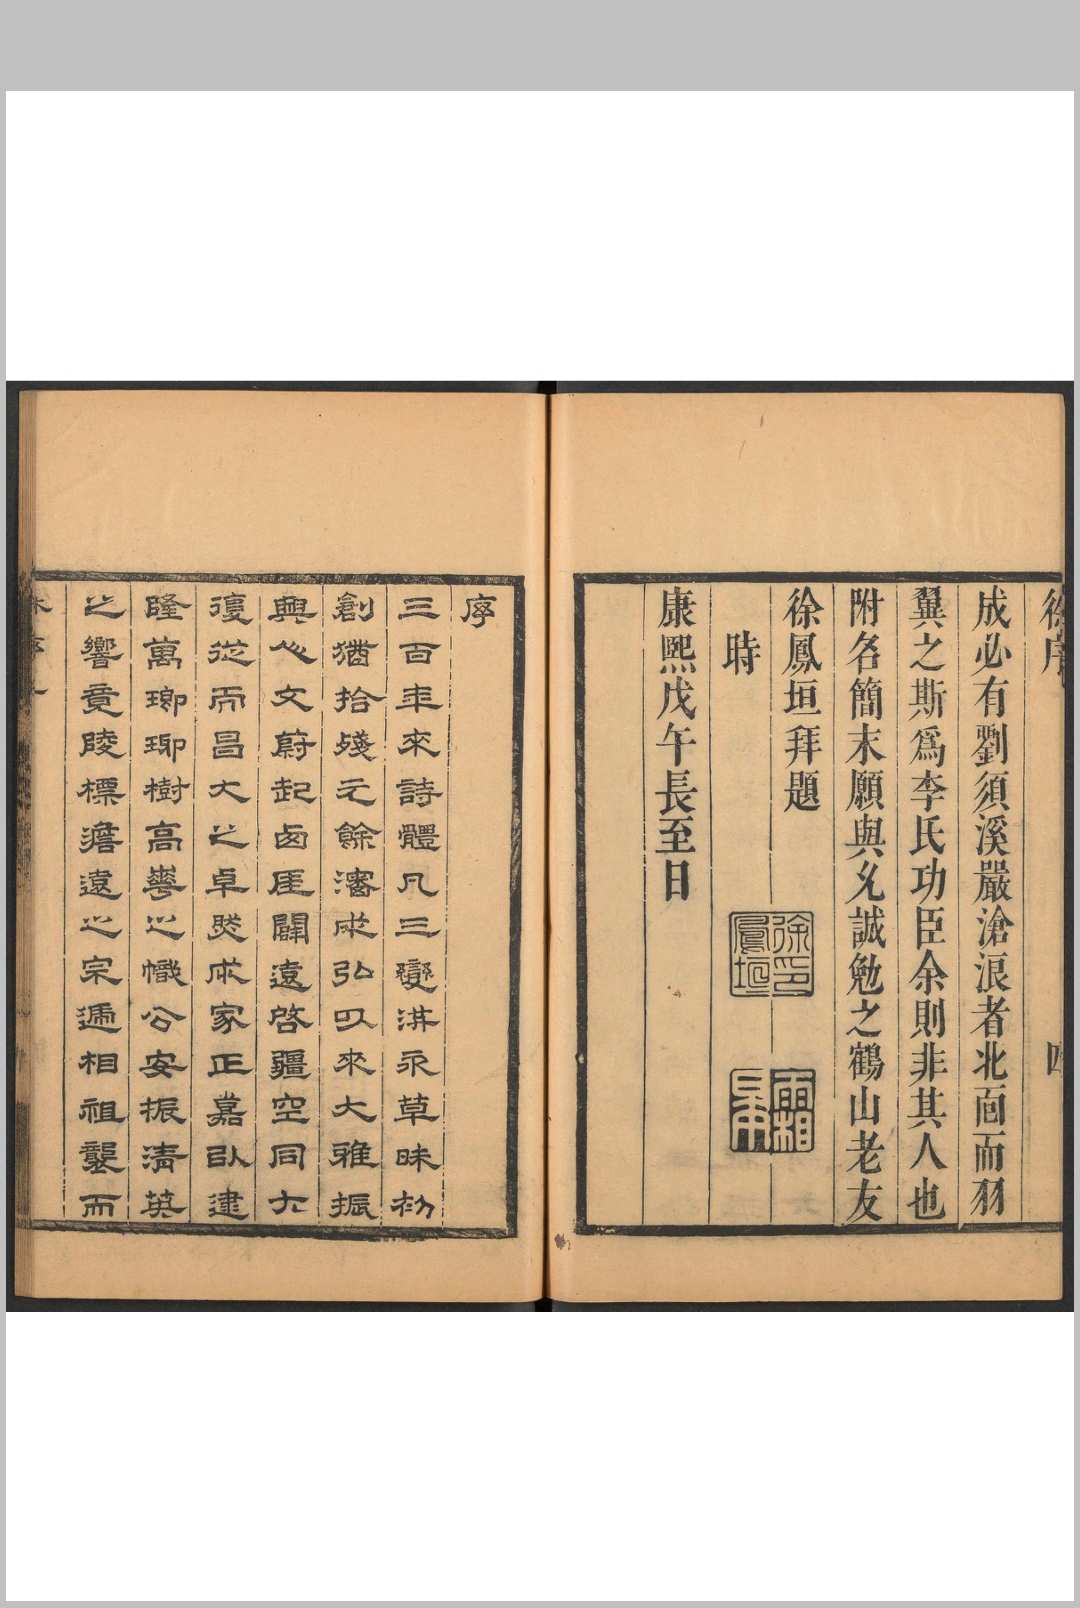 徐序 四
成必有劉須溪嚴滄浪者北面而羽
翼之斯爲李氏功臣余則非其人也
附名簡末願與乂誠勉之鶴山老友
徐鳳垣拜題
徐印鳳垣
霜皋
時
康熙戊午長至日
序
三百年來詩體凡三變洪永草昧初
創猶拾殘元餘瀋成弘以來大雅振
興人文蔚起西厓闢遠啓疆空同大
復從而昌大之卓然成家正嘉以逮
隆萬瑯琊樹高華之幟公安振清英
之響竟陵標澹遠之宗遞相祖襲而